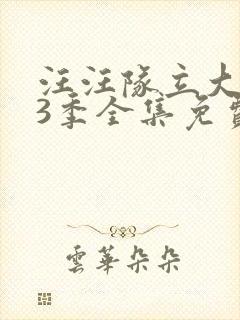 汪汪隊立大
3季全集免費
雲華朵朵